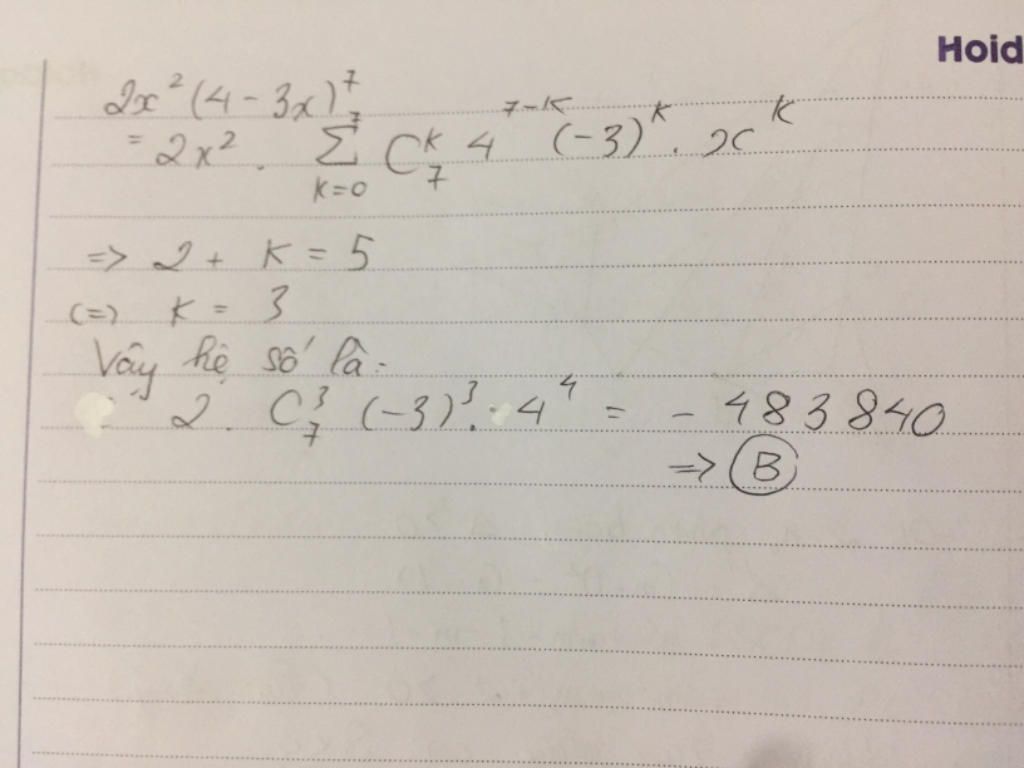 Hoid
2x²(4 - 3x)⁷
= 2x² . ⁷Σₖ₌₀ C₇ᵏ 4⁷⁻ᴷ (-3)ᵏ . xᵏ
=> 2 + K = 5
(=) K = 3
Vậy hệ số là:
2 . C₇³ (-3)³ . 4⁴ = - 483840
=> B